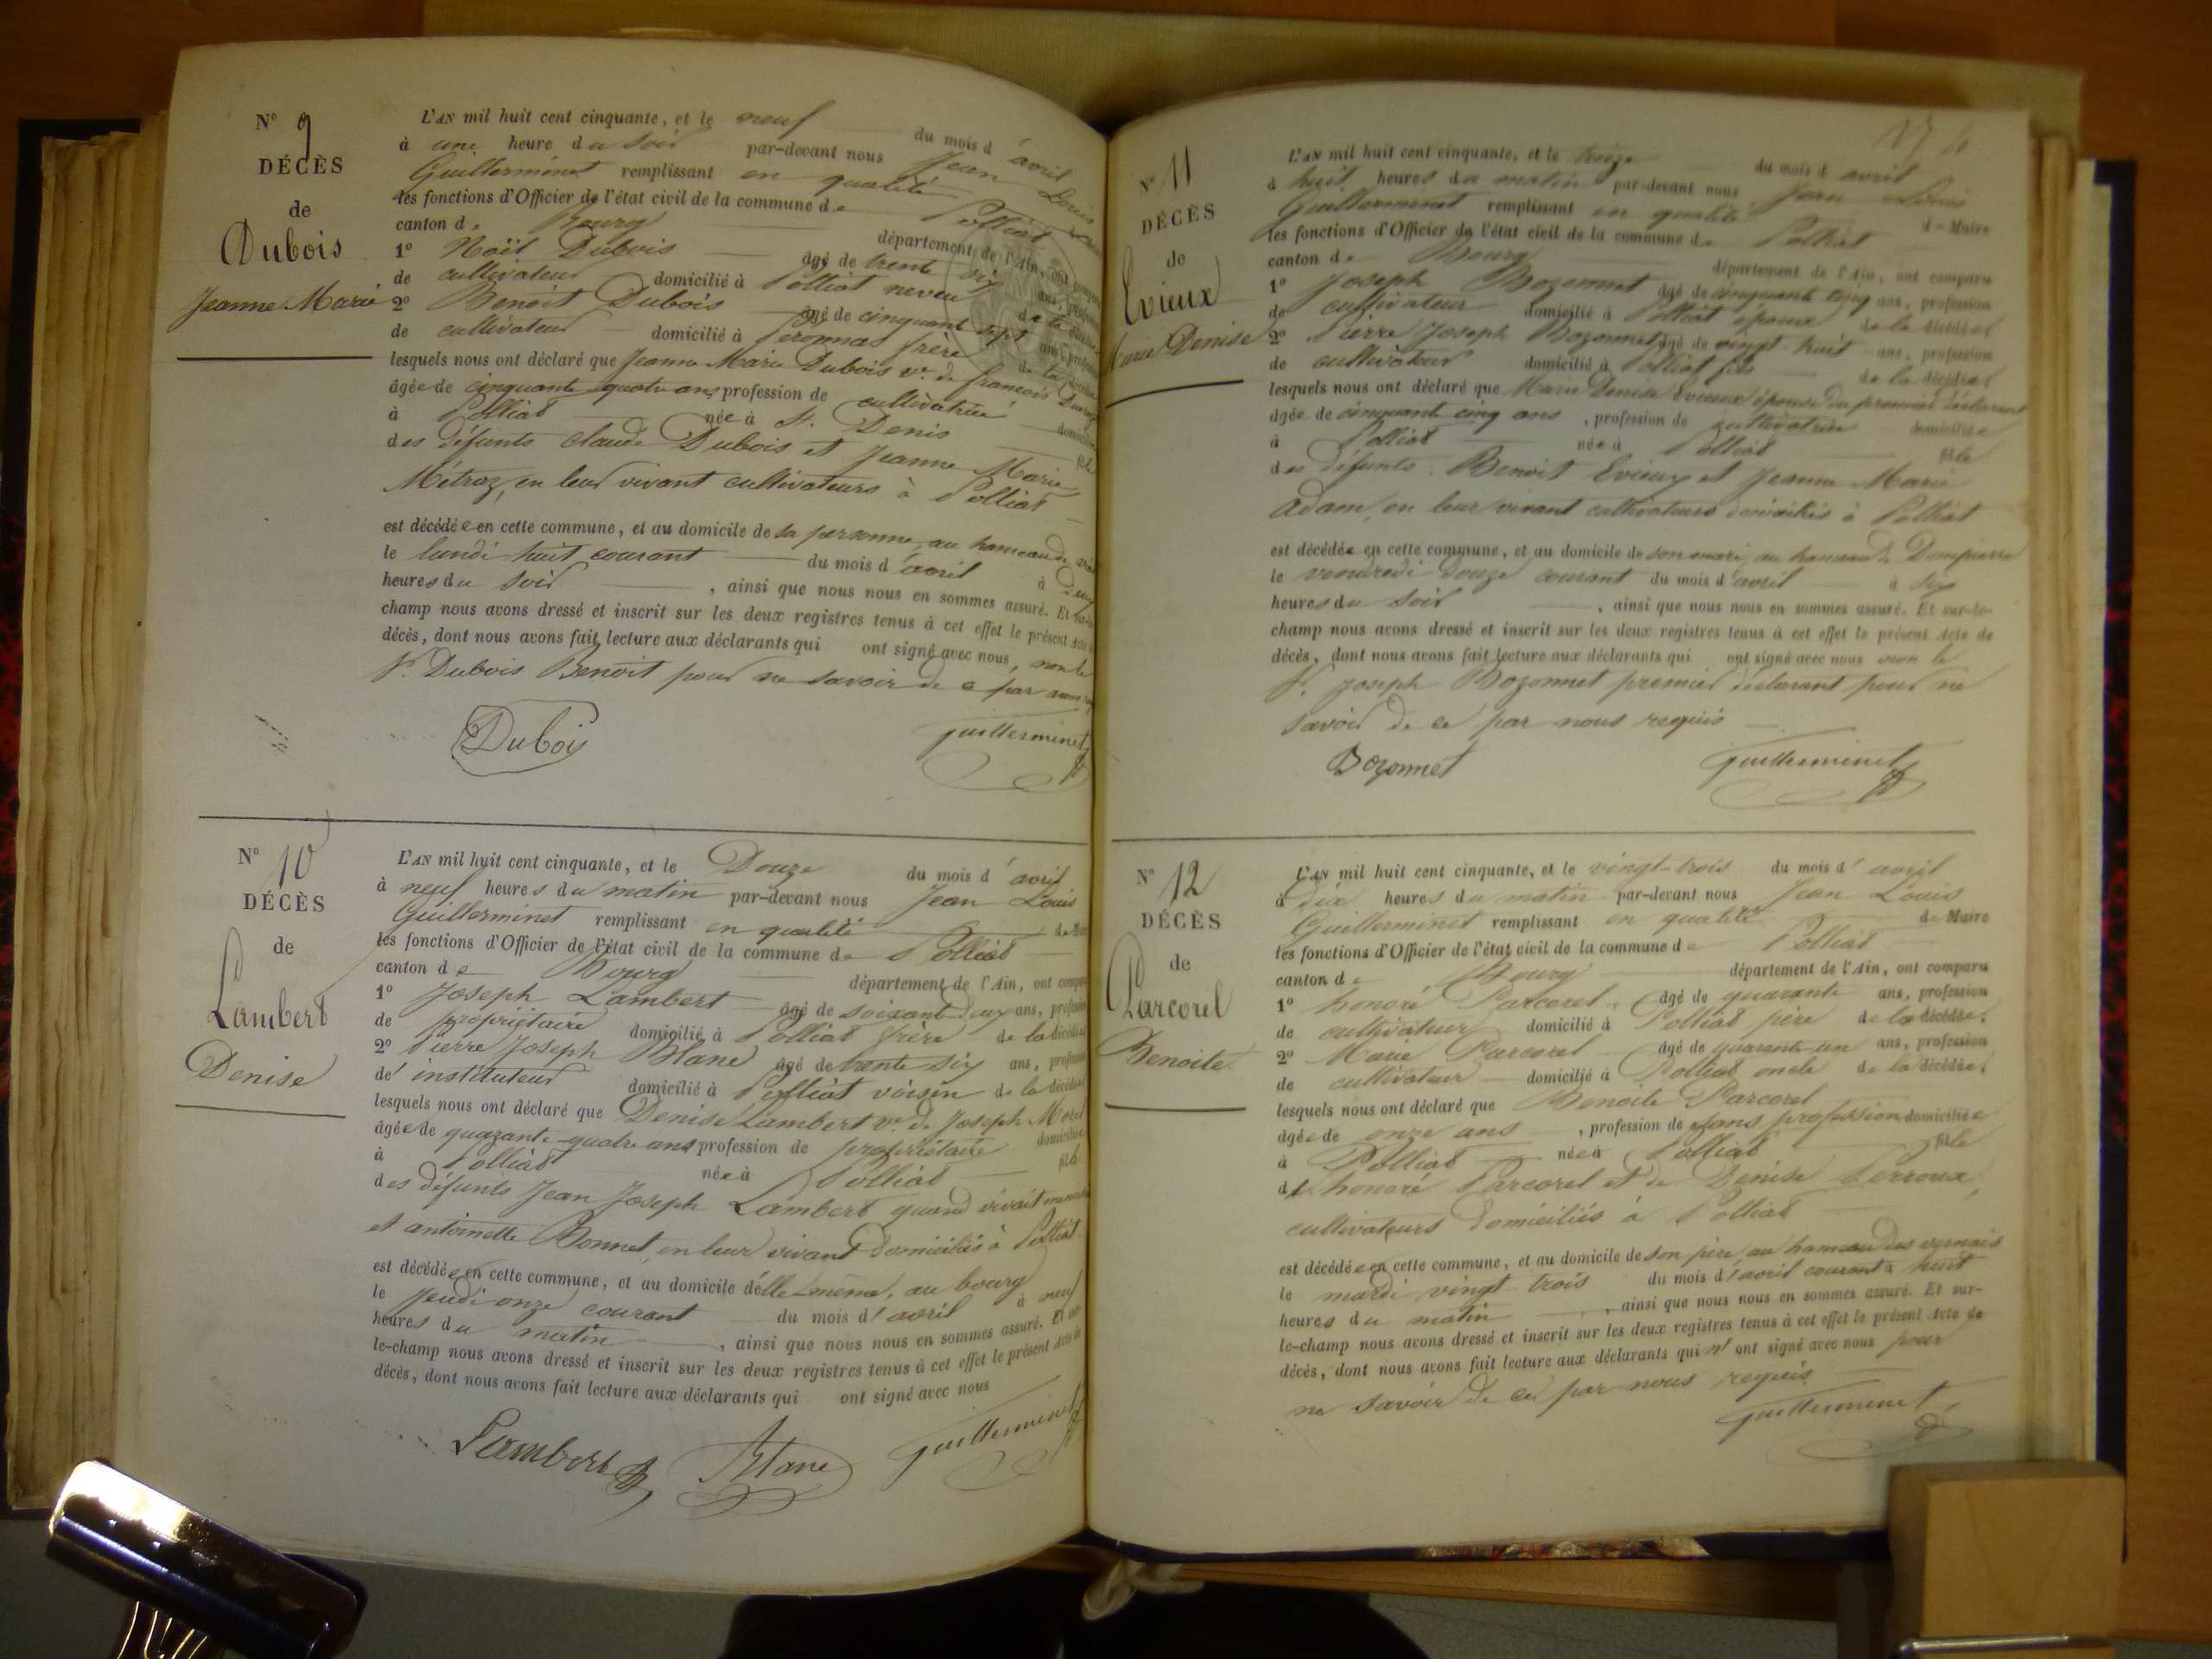 N° 9
DÉCÈS
de
Dubois
Jeanne Marie
L'AN mil huit cent cinquante, et le neuf du mois d'avril
à une heure du soir par-devant nous Jean Louis
Guillerminet remplissant en qualité
les fonctions d'Officier de l'état civil de la commune de Polliat
canton de Bourg département de l'Ain, ont comparu
1° Noël Dubois âgé de trente six ans, profession
de cultivateur domicilié à Polliat neveu de la décédée
2° Benoit Dubois âgé de cinquante sept ans, profession
de cultivateur domicilié à Péronnas frère de la décédée
lesquels nous ont déclaré que Jeanne Marie Dubois ve. de françois
âgée de cinquante quatre ans profession de cultivatrice domiciliée
à Polliat née à St. Denis fille
des défunts Claude Dubois et Jeanne Marie
Métraz, en leur vivant cultivateurs à Polliat
est décédée en cette commune, et au domicile de sa personne, au hameau de
le lundi huit courant du mois d'avril à deux
heures du soir, ainsi que nous nous en sommes assuré. Et
champ nous avons dressé et inscrit sur les deux registres tenus à cet effet le présent Acte
décès, dont nous avons fait lecture aux déclarants qui ont signé avec nous, non le
Sr. Dubois Benoit pour ne savoir de ce par nous
Dubois Guillerminet
N° 10
DÉCÈS
de
Lambert
Denise
L'AN mil huit cent cinquante, et le Douze du mois d'avril
à neuf heures du matin par-devant nous Jean Louis
Guillerminet remplissant en qualité de
les fonctions d'Officier de l'état civil de la commune de Polliat
canton de Bourg département de l'Ain, ont comparu
1° Joseph Lambert âgé de soixante deux ans, profession
de propriétaire domicilié à Polliat frère de la décédée
2° Pierre Joseph Blanc âgé de trente six ans, profession
de instituteur domicilié à Polliat voisin de la décédée
lesquels nous ont déclaré que Denise Lambert ve. de Joseph Morel
âgée de quarante-quatre ans profession de propriétaire domiciliée
à Polliat née à Polliat fille
des défunts Jean Joseph Lambert quand vivait
et antoinette Bonnet, en leur vivant domiciliés à Polliat
est décédée en cette commune, et au domicile d'elle-même, au bourg
le jeudi onze courant du mois d'avril à neuf
heures du matin, ainsi que nous nous en sommes assuré. Et
le-champ nous avons dressé et inscrit sur les deux registres tenus à cet effet le présent Acte de
décès, dont nous avons fait lecture aux déclarants qui ont signé avec nous
Lambert Blanc Guillerminet
N° 11
DÉCÈS
de
Evieux
Marie Denise
L'AN mil huit cent cinquante, et le treize du mois d avril
à huit heures du matin par-devant nous Jean Louis
Guillerminet remplissant en qualité de Maire
les fonctions d'Officier de l'état civil de la commune de Polliat
canton de Bourg département de l'Ain, ont comparu
1° Joseph Bozonnet âgé de cinquante cinq ans, profession
de cultivateur domicilié à Polliat époux de la décédée
2° Pierre Joseph Bozonnet âgé de vingt huit ans, profession
de cultivateur domicilié à Polliat fils de la décédée
lesquels nous ont déclaré que Marie Denise Evieux épouse du premier déclarant
âgée de cinquante cinq ans, profession de cultivatrice domiciliée
à Polliat née à Polliat fille
des défunts Benoit Evieux et Jeanne Marie
Adam, en leur vivant cultivateurs domiciliés à Polliat
est décédée en cette commune, et au domicile de son mari, au hameau de Dompierre
le vendredi douze courant du mois d'avril à six
heures du soir, ainsi que nous nous en sommes assuré. Et sur-le-
champ nous avons dressé et inscrit sur les deux registres tenus à cet effet le présent Acte de
décès, dont nous avons fait lecture aux déclarants qui ont signé avec nous non le
Sr. Joseph Bozonnet premier déclarant pour ne
savoir de ce par nous requis
Bozonnet Guillerminet
N° 12
DÉCÈS
de
Parcorel
Benoite
L'AN mil huit cent cinquante, et le vingt-trois du mois d'avril
à dix heures du matin par-devant nous Jean Louis
Guillerminet remplissant en qualité de Maire
les fonctions d'Officier de l'état civil de la commune de Polliat
canton de Bourg département de l'Ain, ont comparu
1° honoré Parcorel âgé de quarante ans, profession
de cultivateur domicilié à Polliat père de la décédée,
2° Marie Parcorel âgé de quarante-un ans, profession
de cultivateur domicilié à Polliat oncle de la décédée,
lesquels nous ont déclaré que Benoite Parcorel
âgée de onze ans, profession de sans profession domiciliée
à Polliat née à Polliat fille
d' honoré Parcorel et de Denise Perroux,
cultivateurs domiciliés à Polliat
est décédée en cette commune, et au domicile de son père, au hameau des vernais
le mardi vingt trois du mois d'avril courant à huit
heures du matin, ainsi que nous nous en sommes assuré. Et sur-
le-champ nous avons dressé et inscrit sur les deux registres tenus à cet effet le présent Acte de
décès, dont nous avons fait lecture aux déclarants qui n'ont signé avec nous pour
ne savoir de ce par nous requis
Guillerminet